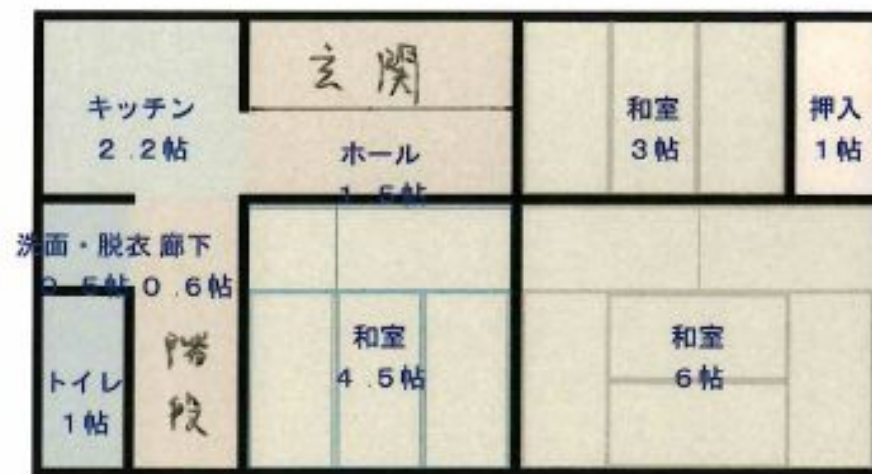 玄関
キッチン
2.2帖
ホール
1.5帖
和室
3帖
押入
1帖
洗面・脱衣
0.5帖
廊下
0.6帖
階段
トイレ
1帖
和室
4.5帖
和室
6帖